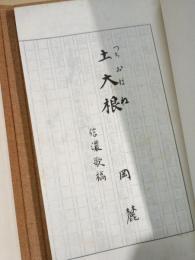 土大根
つちおほね
信濃歌稿
岡麓